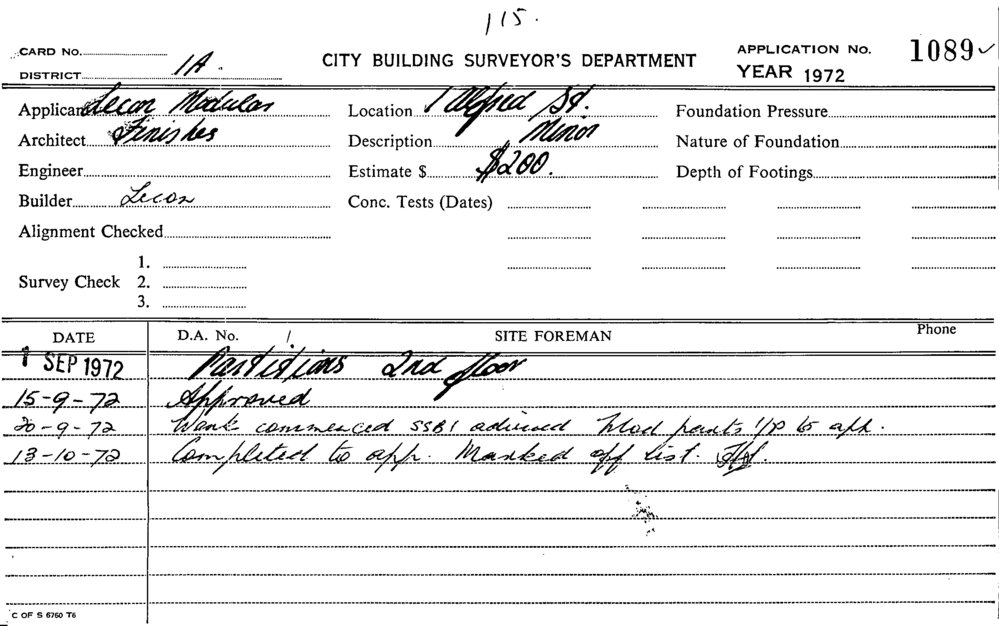 115.
CARD No. CITY BUILDING SURVEYOR'S DEPARTMENT APPLICATION No. 1089 ✓
DISTRICT 1A. YEAR 1972
Applicant Lecon Modular Location 1 Alfred St. Foundation Pressure
Architect Finishes Description Minor Nature of Foundation
Engineer Estimate $ $200. Depth of Footings
Builder Lecon Conc. Tests (Dates)
Alignment Checked
1.
Survey Check 2.
3.
DATE D.A. No. / SITE FOREMAN Phone
1 SEP 1972 Partitions 2nd floor
15-9-72 Approved
20-9-72 Work commenced SSB1 advised Mod parts I/P to app.
13-10-72 Completed to app. Marked off list.
C OF S 6760 T6